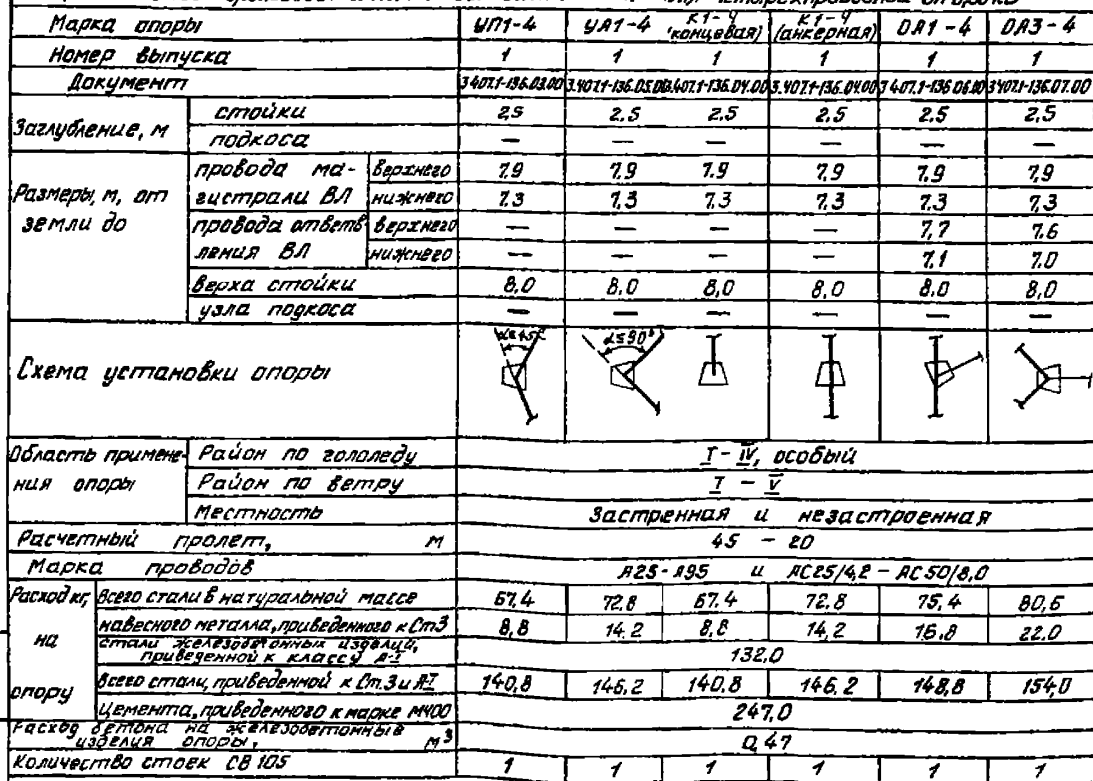 четырехпроводной
Марка опоры УП1-4 УА1-4 К1-4 (концевая) К1-4 (анкерная) ОА1-4 ОА3-4
Номер выпуска 1 1 1 1 1 1
Документ 3.407.1-136.03.00 3.407.1-136.05.00 3.407.1-136.04.00 3.407.1-136.04.00 3.407.1-136.06.00 3.407.1-136.07.00
Заглубление, м стойки 2,5 2,5 2,5 2,5 2,5 2,5
подкоса — — — — — —
Размеры, м, от земли до провода магистрали ВЛ верхнего 7.9 7.9 7.9 7.9 7.9 7.9
нижнего 7.3 7.3 7.3 7.3 7.3 7.3
провода ответвления ВЛ верхнего — — — — 7,7 7.6
нижнего — — — — 7.1 7.0
верха стойки 8,0 8,0 8,0 8,0 8,0 8,0
узла подкоса — — — — — —
Схема установки опоры α≤45° α≤90°
Область применения опоры Район по гололеду I - IV, особый
Район по ветру I - V
Местность Застренная и незастроенная
Расчетный пролет, м 45 - 20
Марка проводов А25-А95 и АС25/4,2 - АС50/8,0
Расход кг, на опору Всего стали в натуральной массе 67.4 72.8 67.4 72.8 75.4 80,6
навесного металла, приведенного к Ст3 8,8 14,2 8,8 14,2 16,8 22.0
стали железобетонных изделий, приведенной к классу А-I 132,0
всего стали, приведенной к Ст.3 и А-I 140,8 146,2 140,8 146,2 148,8 154,0
Цемента, приведенного к марке М400 247,0
Расход бетона на железобетонные изделия опоры, м³ 0,47
Количество стоек СВ 105 1 1 1 1 1 1